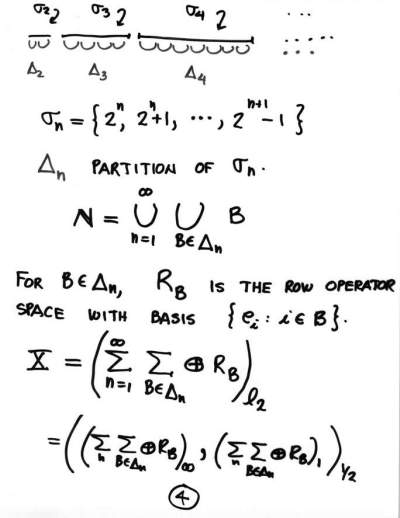 σ₂ σ₃ σ₄ ...
Δ₂ Δ₃ Δ₄
σₙ = {2ⁿ, 2ⁿ+1, ⋯, 2ⁿ⁺¹−1}
Δₙ PARTITION OF σₙ.
N = ∪_{n=1}^{∞} ∪_{B∈Δₙ} B
FOR B∈Δₙ, R_B IS THE ROW OPERATOR
SPACE WITH BASIS {e_i : i ∈ B}.
X = (∑_{n=1}^{∞} ∑_{B∈Δₙ} ⊕ R_B)_{ℓ₂}
= ((∑_n ∑_{B∈Δₙ} ⊕R_B)_∞, (∑_n ∑_{B∈Δₙ} ⊕R_B)_1)_{1/2}
4